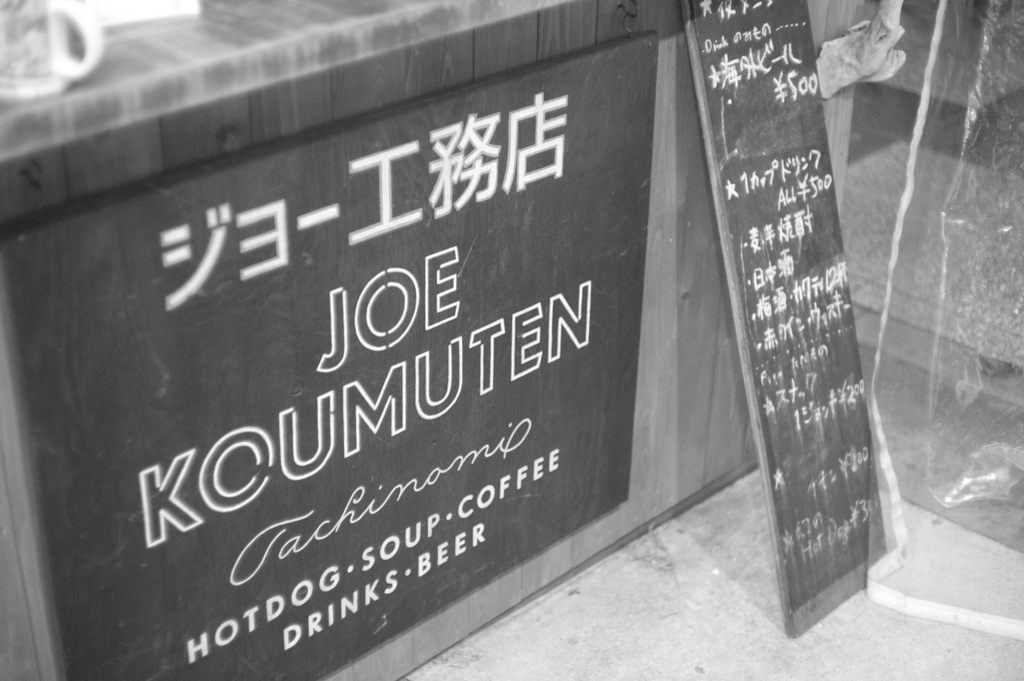 ジョー工務店
JOE
KOUMUTEN
Tachinomi
HOTDOG・SOUP・COFFEE
DRINKS・BEER
Drink のみもの
★海外ビール
¥500
★1カップドリンク
ALL¥500
・麦・芋焼酎
・日本酒
・梅酒・カクテル
・赤ワイン・ウィスキー
★スナック
¥200
Hot Dog